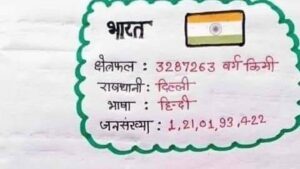 भारत
क्षेत्रफल : 3287263 वर्ग किमी
राजधानी : दिल्ली
भाषा : हिन्दी
जनसंख्या : 1,21,01,93,422